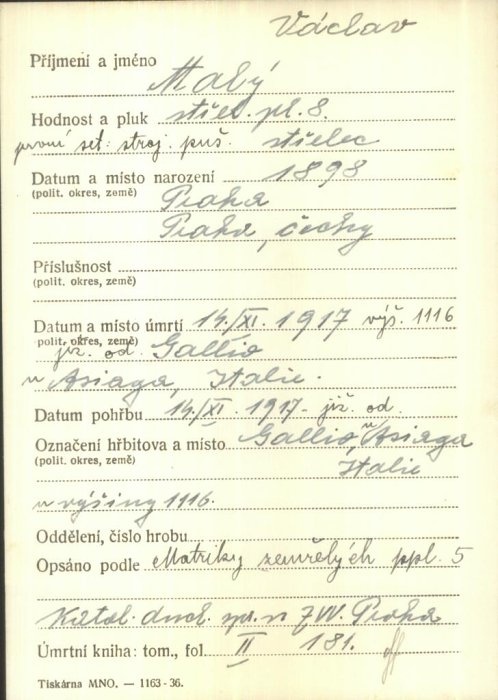 Václav
Příjmení a jméno Malý
Hodnost a pluk střel. pl. 8.
první set. stroj. puš. střelec
Datum a místo narození 1898
(polit. okres, země) Praha
Praha, Čechy
Příslušnost
(polit. okres, země)
Datum a místo úmrtí 14./XI. 1917 výš. 1116
polit. okres, země) již. od Gallio
u Asiaga, Italie.
Datum pohřbu 14./XI. 1917 - již. od.
Označení hřbitova a místo Gallio u Asiaga
(polit. okres, země) Italie
u výšiny 1116.
Oddělení, číslo hrobu
Opsáno podle Matriky zemřelých ppl. 5
Katol. duch. spr. n ZVV. Praha
Úmrtní kniha: tom., fol. II 181.
Tiskárna MNO. — 1163-36.